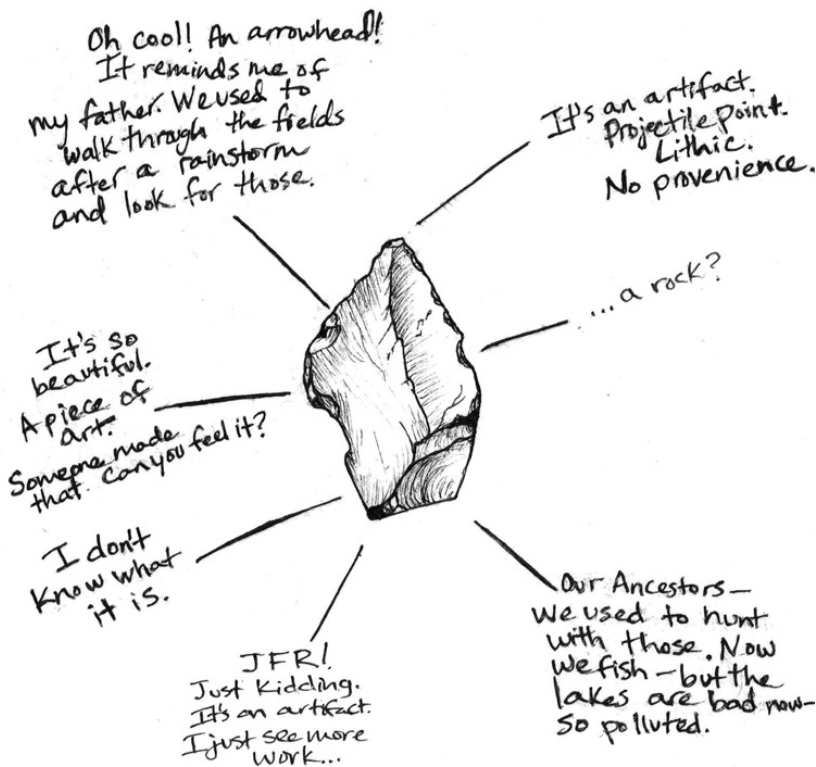 Oh cool! An arrowhead!
It reminds me of
my father. We used to
walk through the fields
after a rainstorm
and look for those.
It's an artifact.
Projectile point.
Lithic.
No provenience.
...a rock?
It's so
beautiful.
A piece of
art.
Someone made
that. Can you feel it?
I don't
know what
it is.
JFR!
Just kidding.
It's an artifact.
I just see more
work...
Our Ancestors—
we used to hunt
with those. Now
we fish—but the
lakes are bad now—
so polluted.